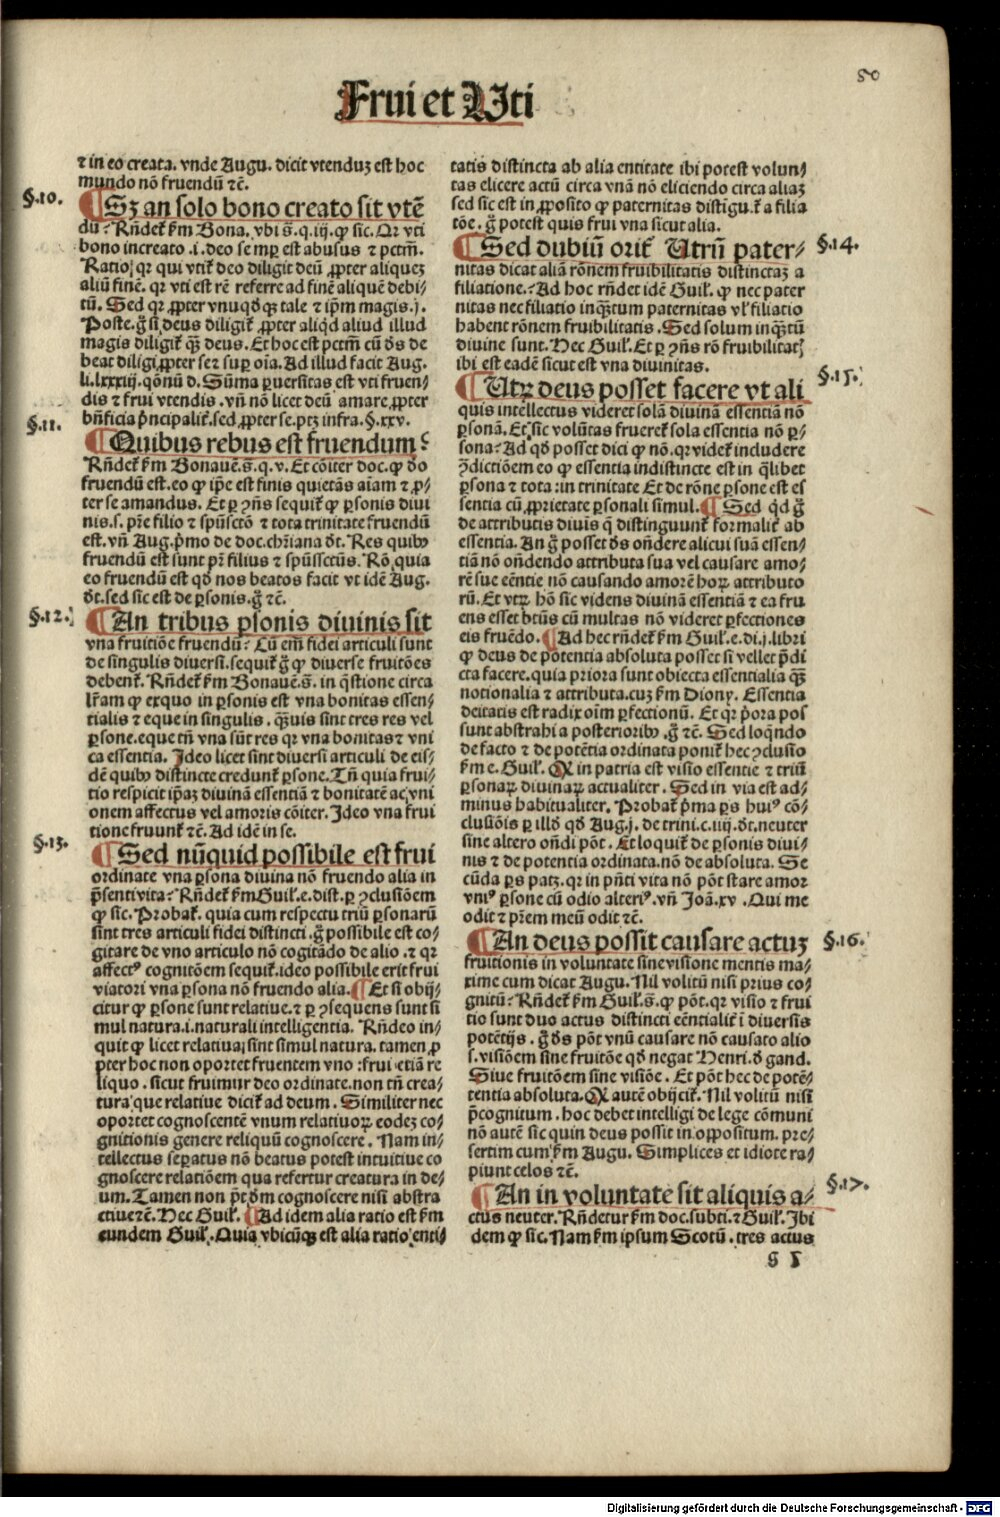 50
Frui et Uti
⁊ in eo creata. vnde Augu. dicit vtenduꝫ est hoc
mundo nō fruendū ⁊c̄.
§.10.
¶ Sꝫ an solo bono creato sit vtē
du? Rn̄det᷑ ẜm Bona. vbi s̄.q.iij.ꝙ sic. Qꝛ vti
bono increato .i. deo semꝑ est abusus ⁊ pctm̄.
Ratio: qꝛ qui vtit᷑ deo diligit deū ꝓpter aliqueꝫ
aliū finē. qꝛ vti est rē referre ad finē aliquē debi⸗
tū. Sed qꝛ ꝓpter vnuqd̓qꝫ tale ⁊ ip̄m magis.j.
Poste.g̊ si deus diligit᷑ ꝓpter aliqd̓ aliud illud
magis diligit᷑ qꝫ̄ deus. Et hoc est pctm̄ cū d̓s de
beat diligi ꝓpter seꝫ suꝑ oīa. Ad illud facit Aug.
li.lxxxiij.qōnū d. Sūma ꝑuersitas est vti fruen⸗
dis ⁊ frui vtendis. vn̄ nō licet deū amare ꝓpter
bn̄ficia pͥncipalit᷑.sed ꝓpter se.ptꝫ infra.§.xxv.
§.11.
¶ Quibus rebus est fruendum?
Rn̄det᷑ ẜm Bonauē.s̄.q.v. Et cōiter doc.ꝙ d̓o
fruendū est.eo ꝙ ip̄e est finis quietās aīam ⁊ ꝓ⸗
ter se amandus. Et ꝑ ↄn̄s sequit᷑ ꝙ ꝑsonis diui
nis.s. pr̄e filio ⁊ spūsctō ⁊ tota trinitate fruendū
est. vn̄ Aug.pͥmo de doc.chr̄iana d̓t. Res quibꝰ
fruendū est sunt pr̄ filius ⁊ spūssctūs. Rō.quia
eo fruendū est qd̓ nos beatos facit vt idē Aug.
d̓t.sed sic est de ꝑsonis.g̊ ⁊c̄.
§.12.
¶ An tribus ꝑsonis diuinis sit
vna fruitiōe fruendū? Cū em̄ fidei articuli sunt
de singulis diuersi.sequit᷑ g̊ ꝙ diuerse fruitōes
debent᷑. Rn̄det᷑ ẜm Bonauē.s̄. in qōstione circa
lr̄am ꝙ exquo in ꝑsonis est vna bonitas essen⸗
tialis ⁊ eque in singulis . qꝫ̄uis sint tres res vel
ꝑsone.eque tn̄ vna sūt res qꝛ vna bonitas ⁊ vni
ca essentia. Ideo licet sint diuersi articuli de eis⸗
dē quibꝰ distincte credunt᷑ ꝑsone. Tn̄ quia frui⸗
tio respicit ip̄aꝫ diuinā essentiā ⁊ bonitatē ac vni
onem affectus vel amoris cōiter. Ideo vna frui
tione fruunt᷑ ⁊c̄. Ad idē in se.
§.13.
¶ Sed nūquid possibile est frui
ordinate vna ꝑsona diuina nō fruendo alia in
p̄senti vita? Rn̄det᷑ ẜm Guil᷑.e.dist.ꝑ ↄclusiōem
ꝙ sic. Probat᷑. quia cum respectu triū ꝑsonarū
sint tres articuli fidei distincti.g̊ possibile est co⸗
gitare de vno articulo nō cogitādo de alio .⁊ qꝛ
affectꝰ cognitōem sequit᷑.ideo possibile erit frui
viatori vna ꝑsona nō fruendo alia. ¶ Et si obij⸗
citur ꝙ ꝑsone sunt relatiue.⁊ ꝑ ↄsequens sunt si
mul natura.i.naturali intelligentia. Rn̄deo in⸗
quit ꝙ licet relatiua sint simul natura. tamen ꝓ
pter hoc non oportet fruentem vno :frui etiā re
liquo . sicut fruimur deo ordinate.non tn̄ crea⸗
tura que relatiue dicit᷑ ad deum . Similiter nec
oportet cognoscentē vnum relatiuoꝝ eodeꝫ co⸗
gnitionis genere reliquū cognoscere . Nam in⸗
tellectus seꝑatus nō beatus potest intuitiue co
gnoscere relatiōem qua refertur creatura in de⸗
um. Tamen non pt̄ d̓m cognoscere nisi abstra
ctiue ⁊c̄. Hec Guil᷑. ¶ Ad idem alia ratio est ẜm
eundem Guil᷑. Quia vbicūqꝫ est alia ratio enti⸗
tatis distincta ab alia entitate ibi potest volun⸗
tas elicere actū circa vnā nō eliciendo circa aliaꝫ
sed sic est in ꝓposito ꝙ paternitas distīgu.t᷑ a filia
tōe. g̊ potest quis frui vna sicut alia.
§.14.
¶ Sed dubiū orit᷑ Utrū pater⸗
nitas dicat aliā rōnem fruibilitatis distinctaꝫ a
filiatione? Ad hoc rn̄det idē Guil᷑. ꝙ nec pater
nitas nec filiatio inqꝫ̄tum paternitas vl᷑ filiatio
habent rōnem fruibilitatis. Sed solum inqꝫ̄tū
diuine sunt. Hec Guil᷑. Et ꝑ ↄn̄s rō fruibilitat̕
ibi est eadē sicut est vna diuinitas.
§.15.
¶ Utꝝ deus posset facere vt ali
quis intellectus videret solā diuinā essentiā nō
ꝑsonā. Et sic volūtas frueret᷑ sola essentia nō ꝑ⸗
sona? Ad qd̓ posset dici ꝙ nō.qꝛ videt᷑ includere
ↄ̄dictiōem eo ꝙ essentia indistincte est in qͥlibet
ꝑsona ⁊ tota :in trinitate Et de rōne ꝑsone est es
sentia cū ꝓprietate ꝑsonali simul. ¶ Sed qd̓ g̊
de attributis diuis q̄ distinguunt᷑ formalit᷑ ab
essentia. An g̊ posset d̓s on̄dere alicui suā essen⸗
tiā nō on̄dendo attributa sua vel causare amo⸗
rē sue eēntie nō causando amorē hoꝝ attributo
rū. Et vtꝝ hō sic videns diuinā essentiā ⁊ ea fru
ens esset bt̄us cū multas nō videret ꝑfectiones
eis fruēdo. ¶ Ad hec rn̄det᷑ ẜm Guil᷑.e.di.j.libri
ꝙ deus de potentia absoluta posset si vellet p̄di
cta facere.quia priora sunt obiecta essentialia qꝫ̄
notionalia ⁊ attributa.cuꝫ ẜm Diony. Essentia
deitatis est radix oīm ꝑfectionū. Et qꝛ pͥora pos
sunt abstrahi a posterioribꝰ .g̊ ⁊c̄. Sed loqn̄do
de facto ⁊ de potētia ordinata ponit᷑ hec ↄclusio
ẜm e. Guil᷑. Qꝙ in patria est visio essentie ⁊ triū
ꝑsonaꝝ diuinaꝝ actualiter . Sed in via est ad⸗
minus habitualiter. Probat᷑ pͥma ꝑs huiꝰ cō⸗
clusiōis ꝑ illd̓ qd̓ Aug.j. de trini.c.iiij.d̓t.neuter
sine altero on̄di pōt . Et loquit᷑ de ꝑsonis diui⸗
nis ⁊ de potentia ordinata.nō de absoluta. Se
cūda ꝑs patꝫ. qꝛ in pn̄ti vita nō pōt stare amor
vniꝰ ꝑsone cū odio alteriꝰ. vn̄ Joā.xv . Qui me
odit ⁊ pr̄em meū odit ⁊c̄.
§.16.
¶ An deus possit causare actuꝫ
fruitionis in voluntate sine visione mentis ma⸗
xime cum dicat Augu. Nil volitū nisi prius co⸗
gnitū? Rn̄det᷑ ẜm Guil᷑.s̄.ꝙ pōt. qꝛ visio ⁊ frui
tio sunt duo actus distincti eēntialit᷑ ī diuersis
potētijs . g̊ d̓s pōt vnū causare nō causato alio
s. visiōem sine fruitōe qd̓ negat Henri.d̓ gand.
Siue fruitōem sine visiōe . Et pōt hec de potē⸗
tentia absoluta. Qꝙ autē obijcit᷑. Nil volitū nisi
p̄cognitum . hoc debet intelligi de lege cōmuni
nō autē sic quin deus possit in oppositum. pre⸗
sertim cum ẜm Augu. Simplices et idiote ra⸗
piunt celos ⁊c̄.
§.17.
¶ An in voluntate sit aliquis a⸗
ctus neuter. Rn̄detur ẜm doc.subti.⁊ Guil᷑. Ibi
dem ꝙ sic. Nam ẜm ipsum Scotū . tres actus
Digitalisierung gefördert durch die Deutsche Forschungsgemeinschaft - DFG